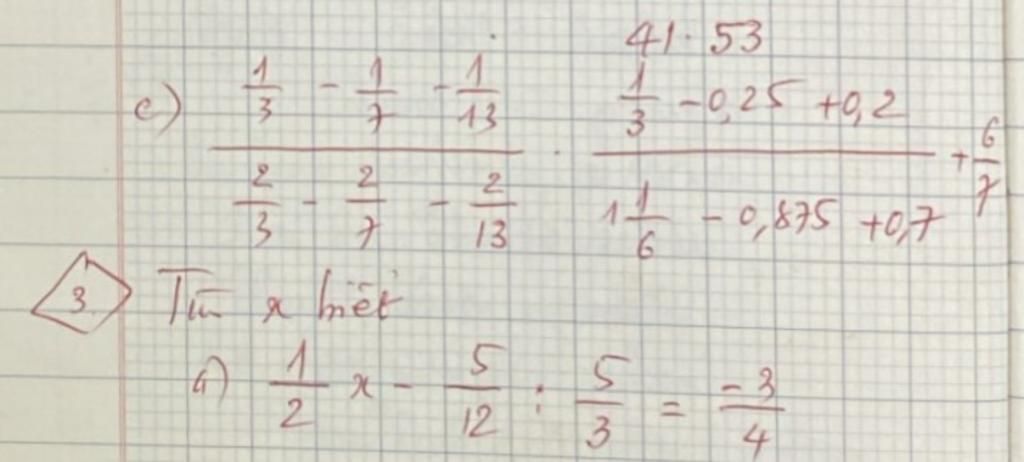 41·53
e) (1/3 - 1/7 - 1/13)/(2/3 - 2/7 - 2/13) · (1/3 - 0,25 + 0,2)/(1 1/6 - 0,875 + 0,7) + 6/7
3 Tìm x biết
a) 1/2 x - 5/12 : 5/3 = -3/4